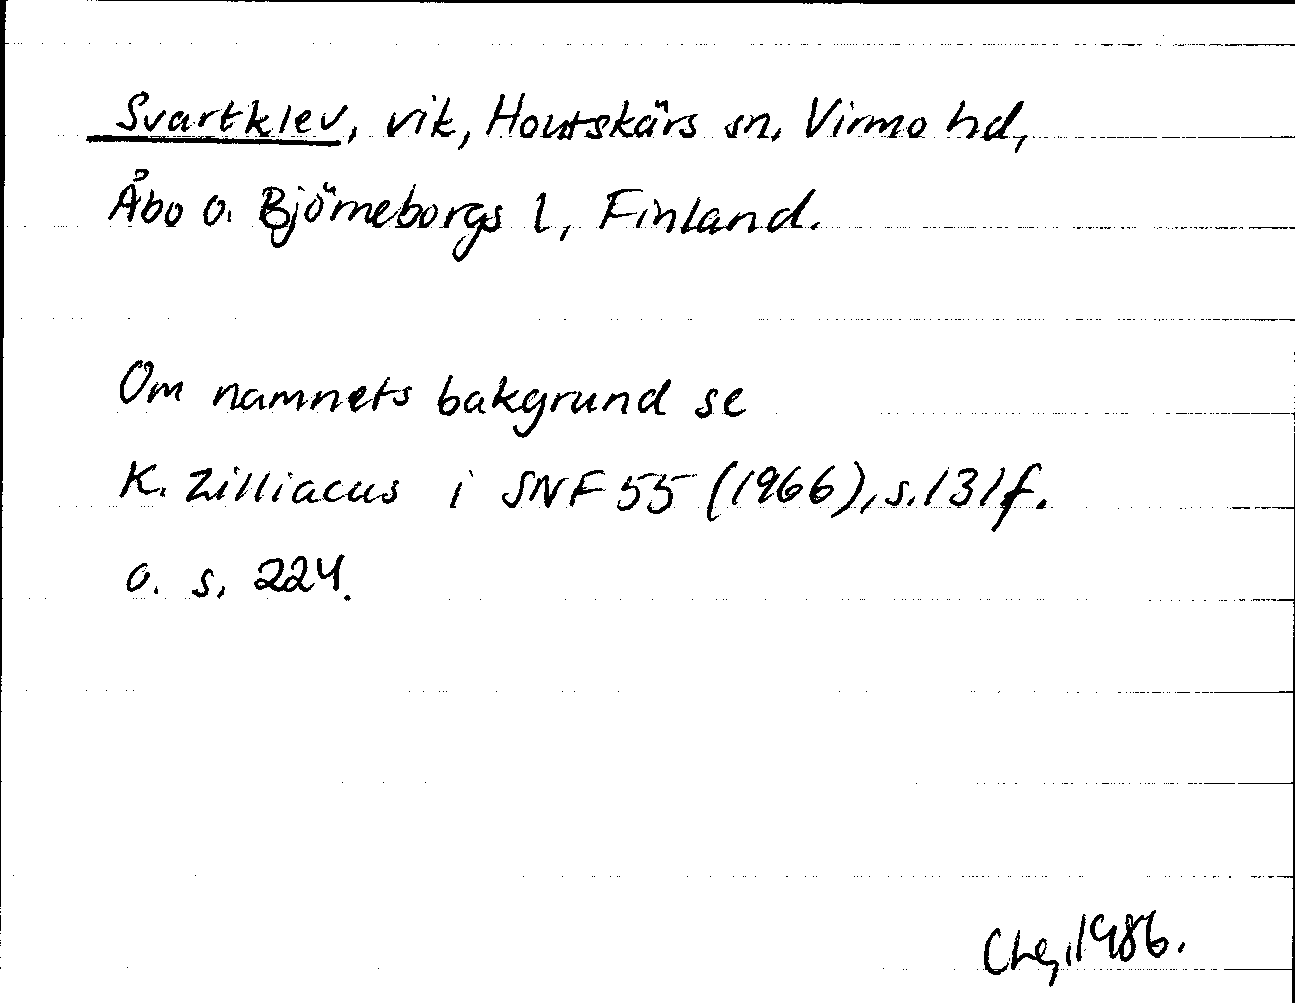 Svartklev, vik, Houtskärs sn, Virmo hd,
Åbo o. Björneborgs l, Finland.
Om namnets bakgrund se
K. Zilliacus i SNF 55 (1966), s. 131f.
o. s. 224.
1986.